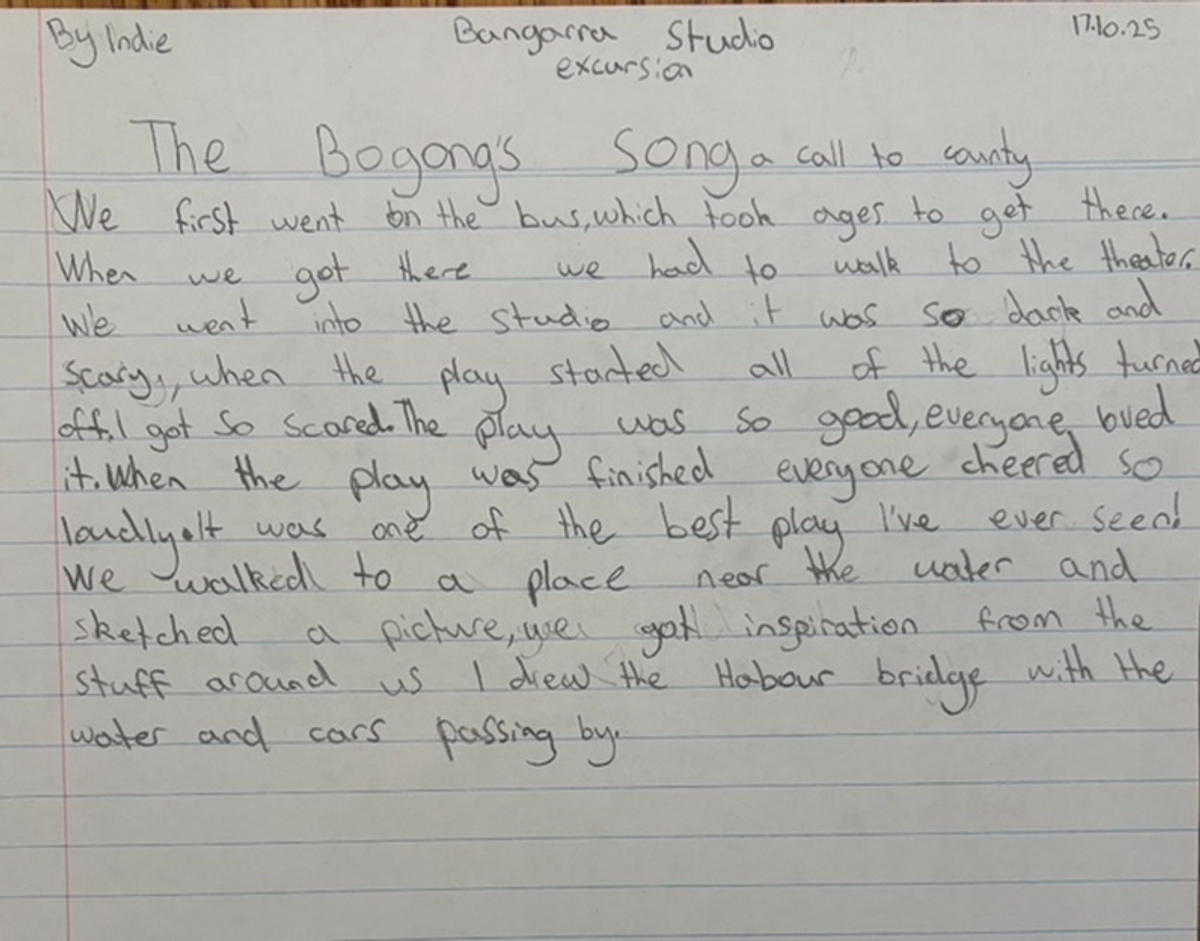 By Indie Bangarra Studio 17.10.25
excursion
The Bogong's Song a call to county
We first went on the bus, which took ages to get there.
When we got there we had to walk to the theater.
We went into the studio and it was so dark and
scary, when the play started all of the lights turned
off. I got so scared. The play was so good, everyone loved
it. When the play was finished everyone cheered so
loudly. It was one of the best play I've ever seen!
We walked to a place near the water and
sketched a picture, we got inspiration from the
stuff around us I drew the Habour bridge with the
water and cars passing by.